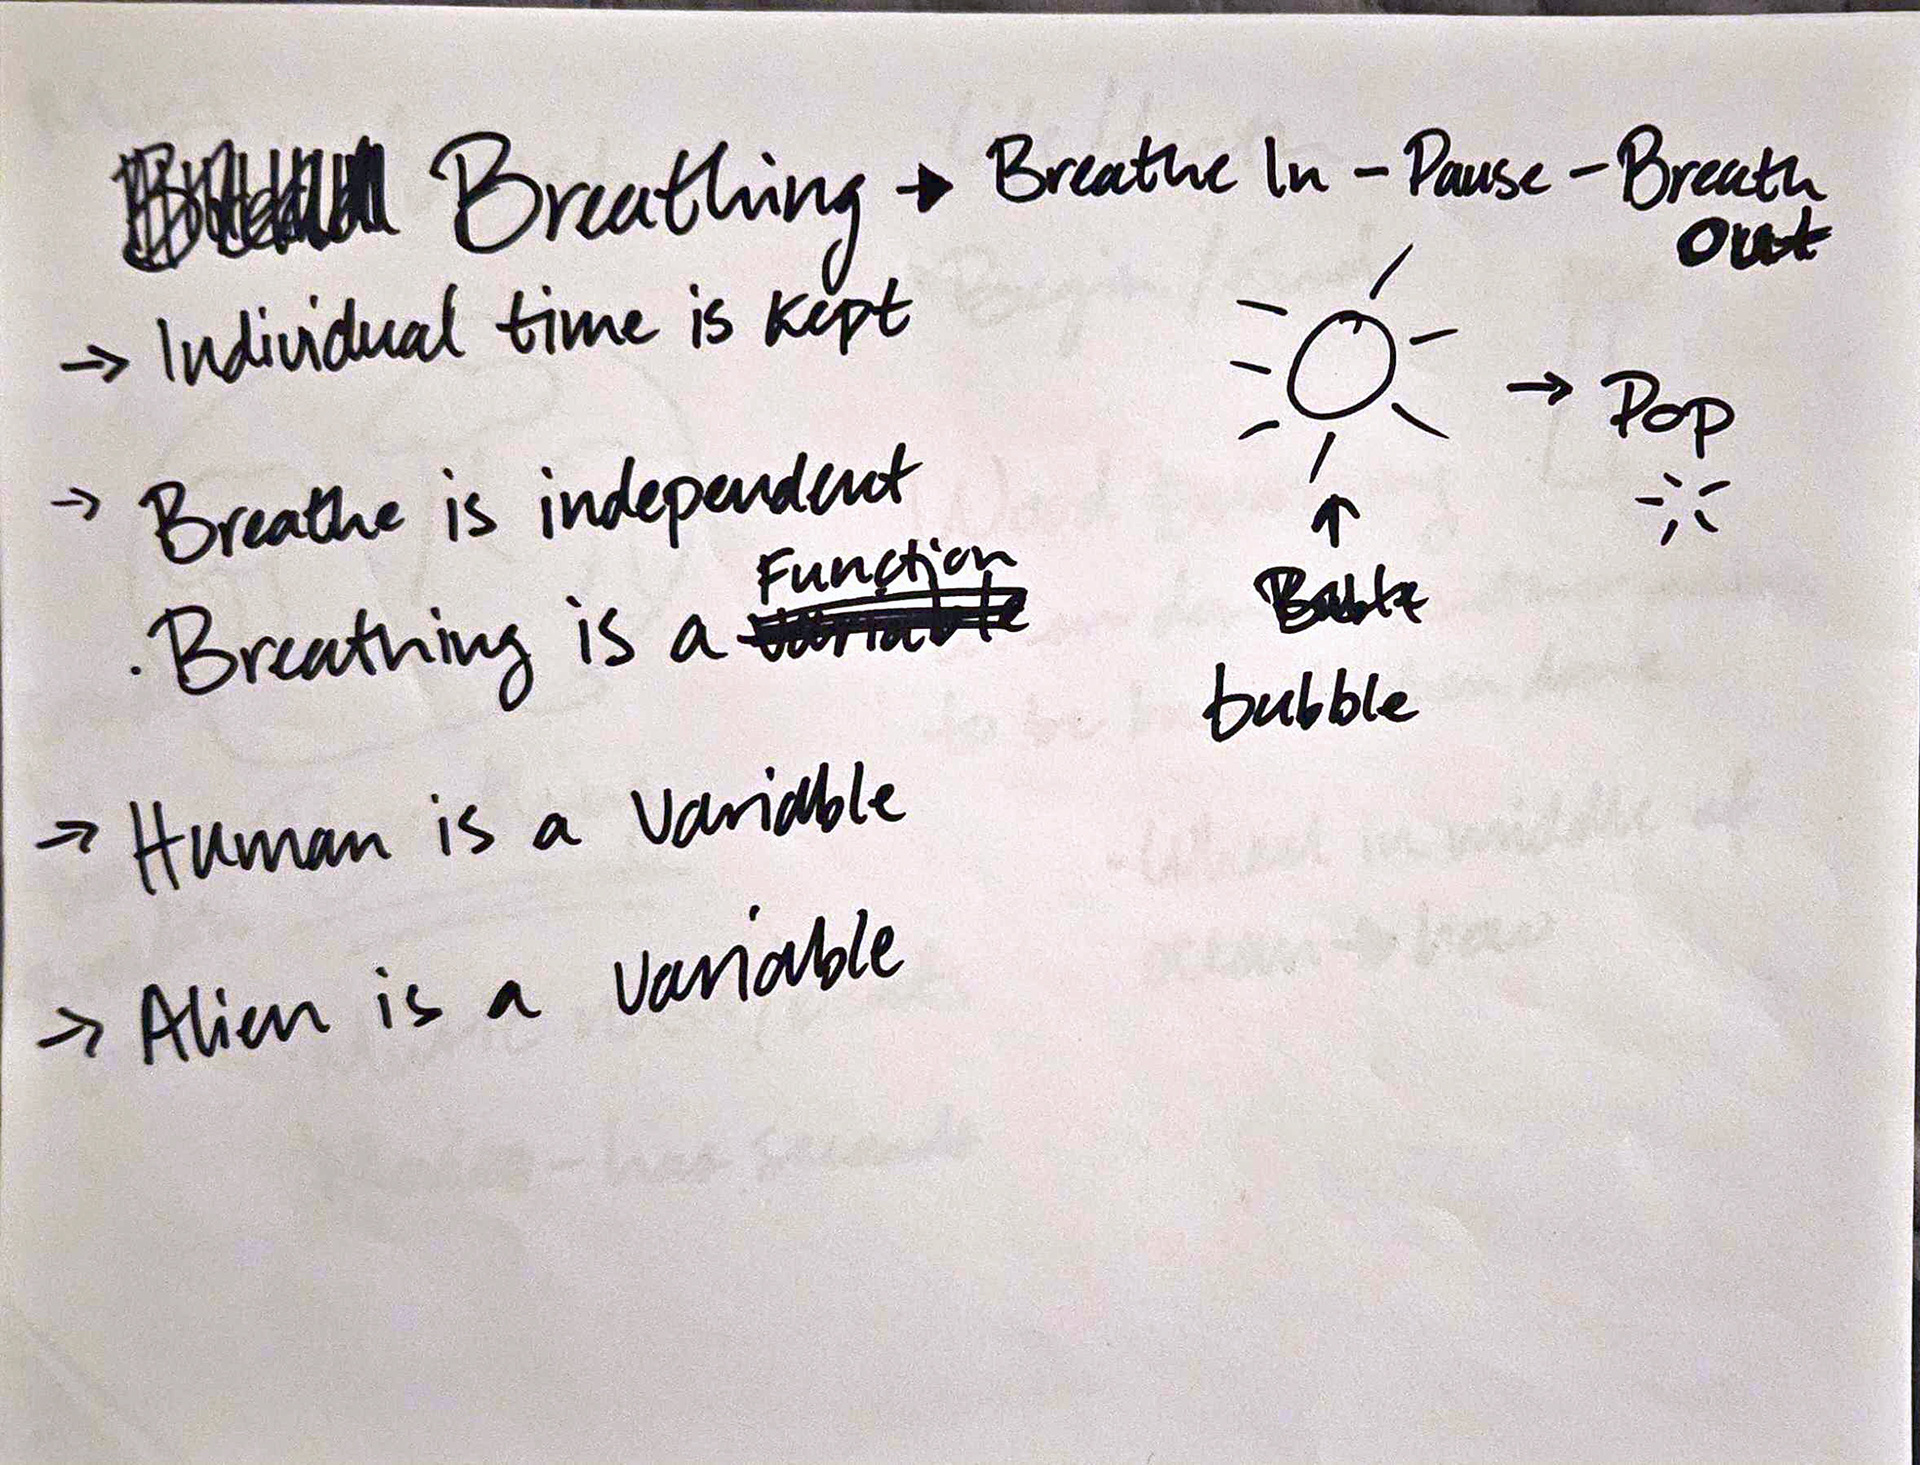 Breathing → Breathe In - Pause - Breath
Out
→ Individual time is kept
→ Pop
→ Breathe is independent
Function
. Breathing is a variable
↑
bubble
→ Human is a variable
→ Alien is a variable